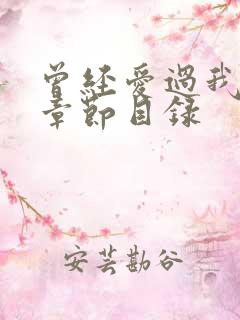 曾經愛過我
章節目錄
安芸勘谷